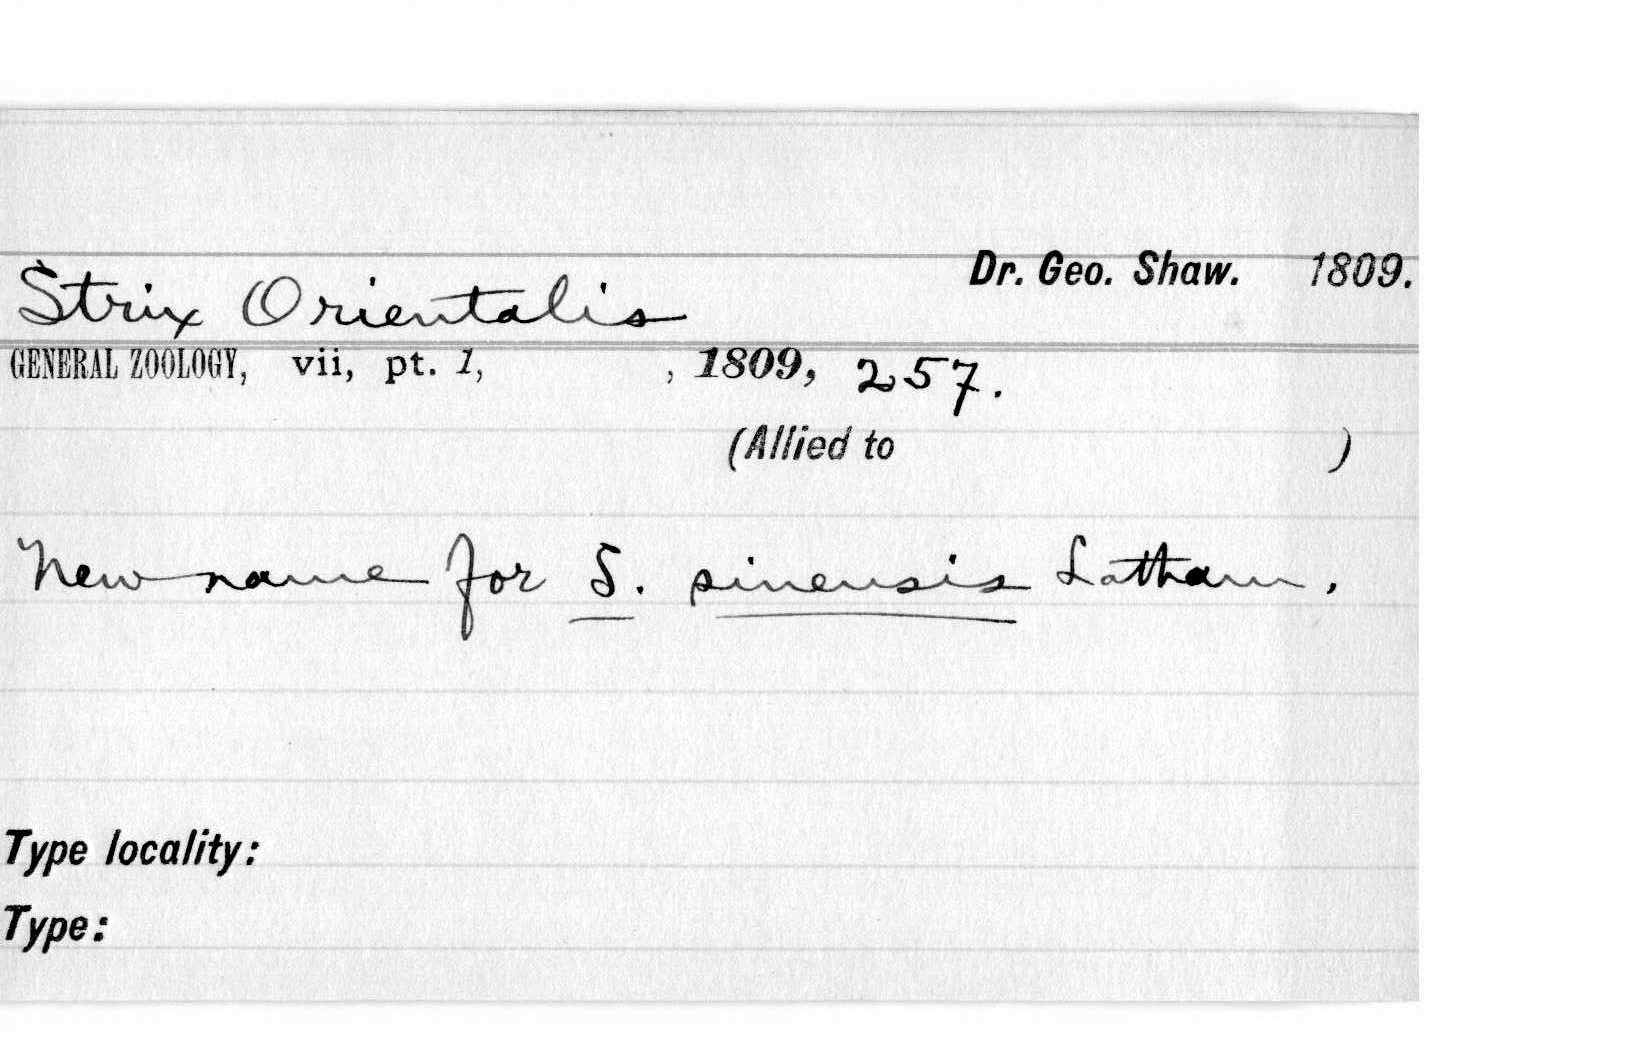 Dr. Geo. Shaw. 1809.
Strix Orientalis
GENERAL ZOOLOGY, vii, pt. 1, , 1809, 257.
(Allied to )
New name for S. sinensis Latham.
Type locality:
Type: